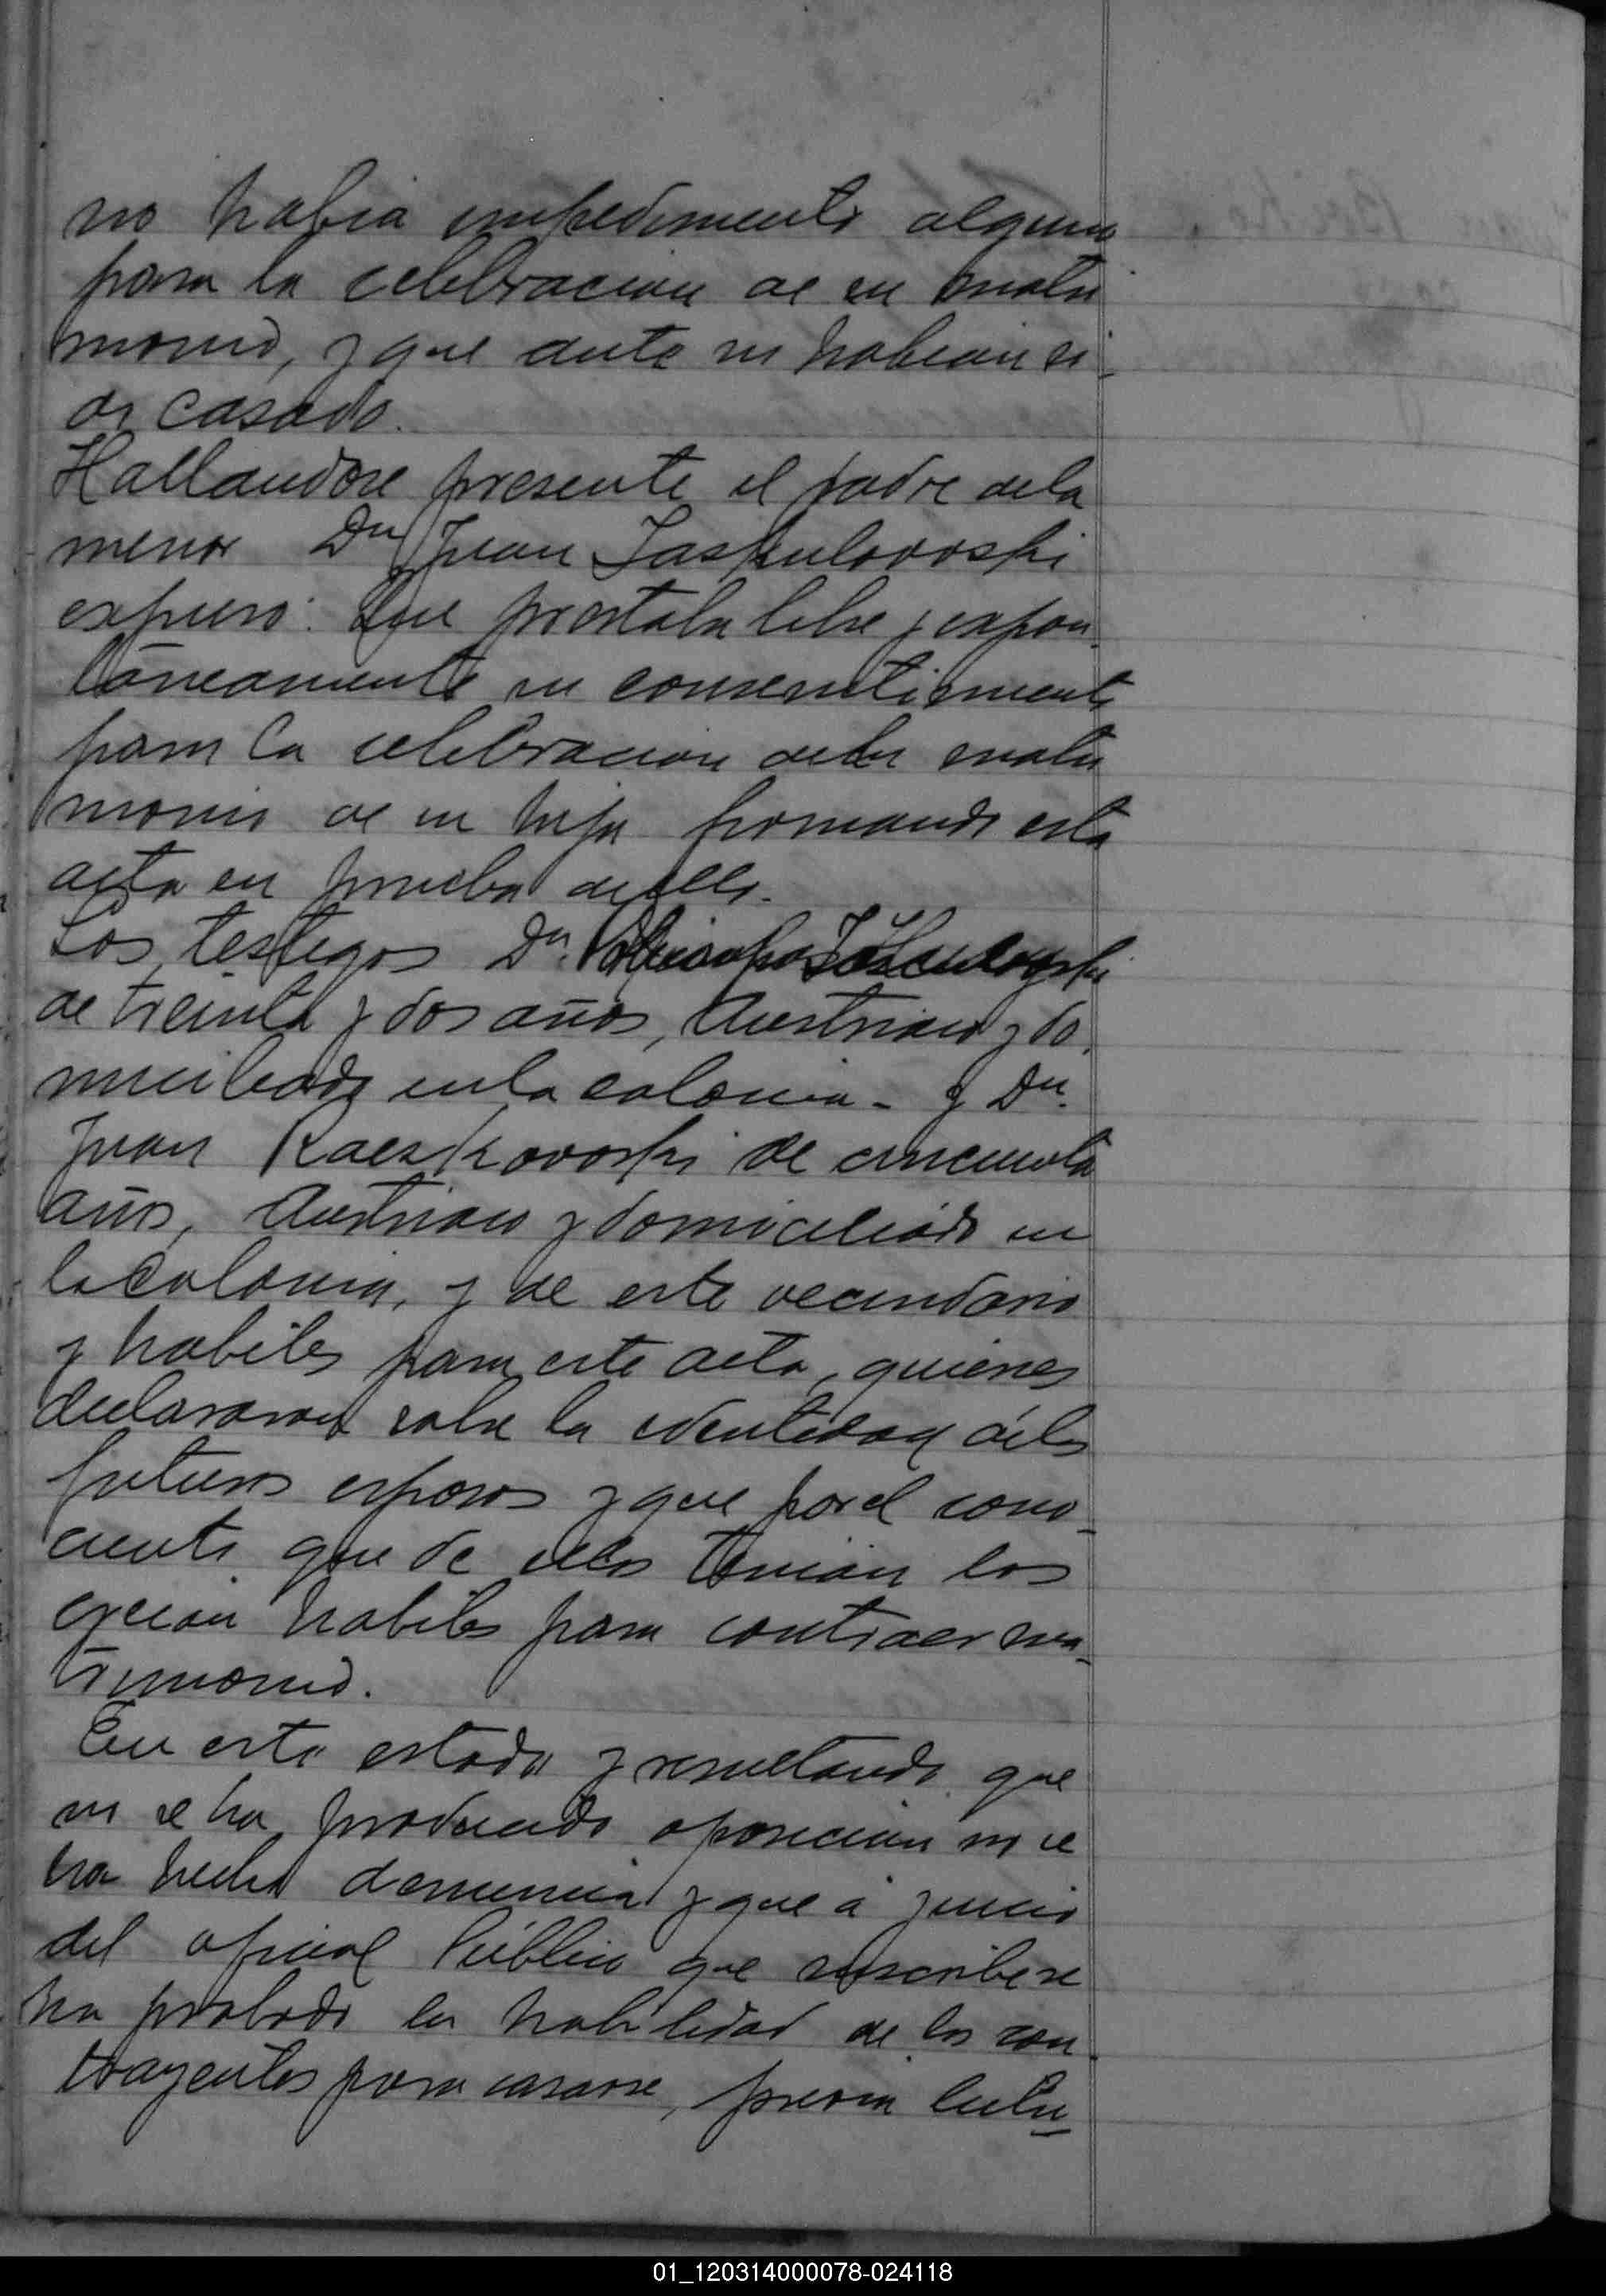 no habia impedimento alguno
para la celebracion de su matri
monio, y que antes no habian si-
do casado.
Hallandose presente el padre dela
menor Dn Juan Jaskulovoski
expuso: Que prestaba libre y expon-
táneamente su consentimento
para la celebracion della matri
monio de su hija firmando esta
acta en prueba de ello.
Los testigos Dn. Jaskulovski
de treinta y dos años, Austriaco y do-
miciliado en la colonia - y Dn.
Juan Raczkovoski de cincuenta
años, Austriaco y domiciliado en
la Colonia, y de este vecindario
y habiles para este acto, quienes
declararon sobre la identidad de los
futuros esposos y que por el cono-
ciento que de ellos tenian los
creian habiles para contraer ma-
trimonio.
En este estado y resultando que
no se ha producido oposicion ni se
ha hecho denuncia y que á juicio
del oficial Público que suscribe se
ha probado la habilidad de los con-
trayentes para casarse, previa lectu-
01_120314000078-024118